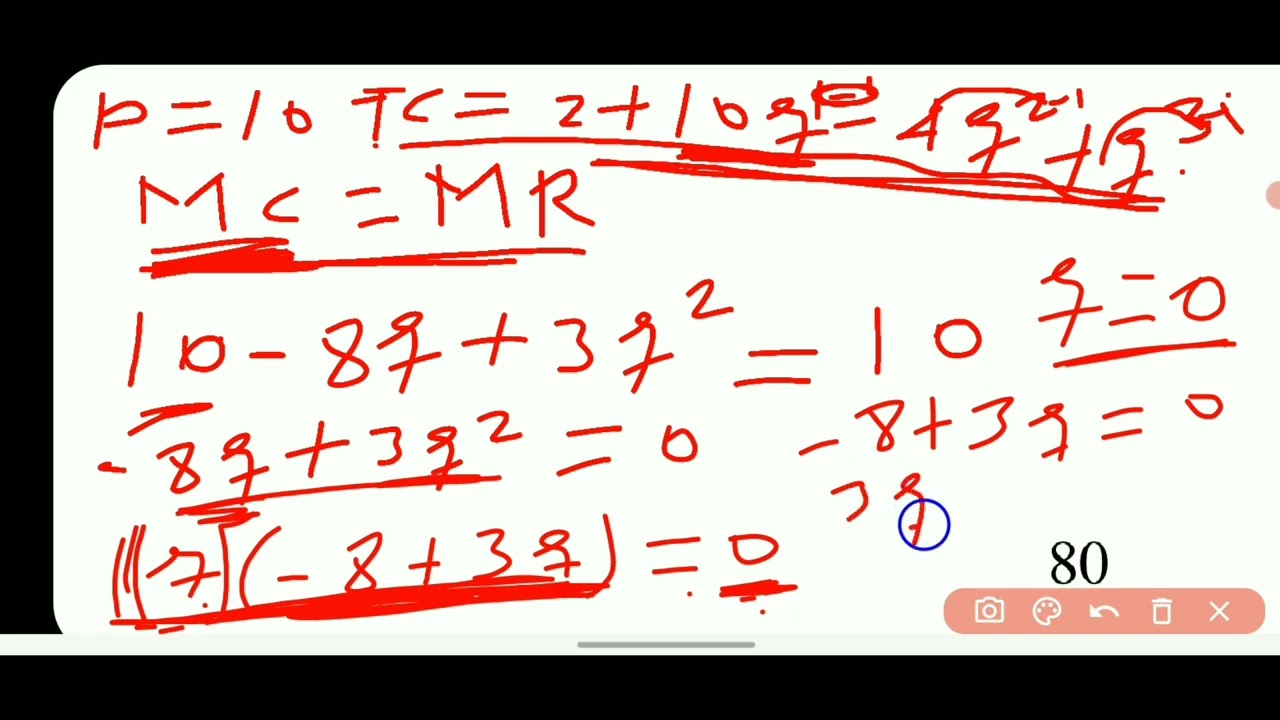 P = 10 TC = 2 + 10q - 4q² + q³
MC = MR
10 - 8q + 3q² = 10
q = 0
- 8q + 3q² = 0
- 8 + 3q = 0
3q
(q)(- 8 + 3q) = 0
80